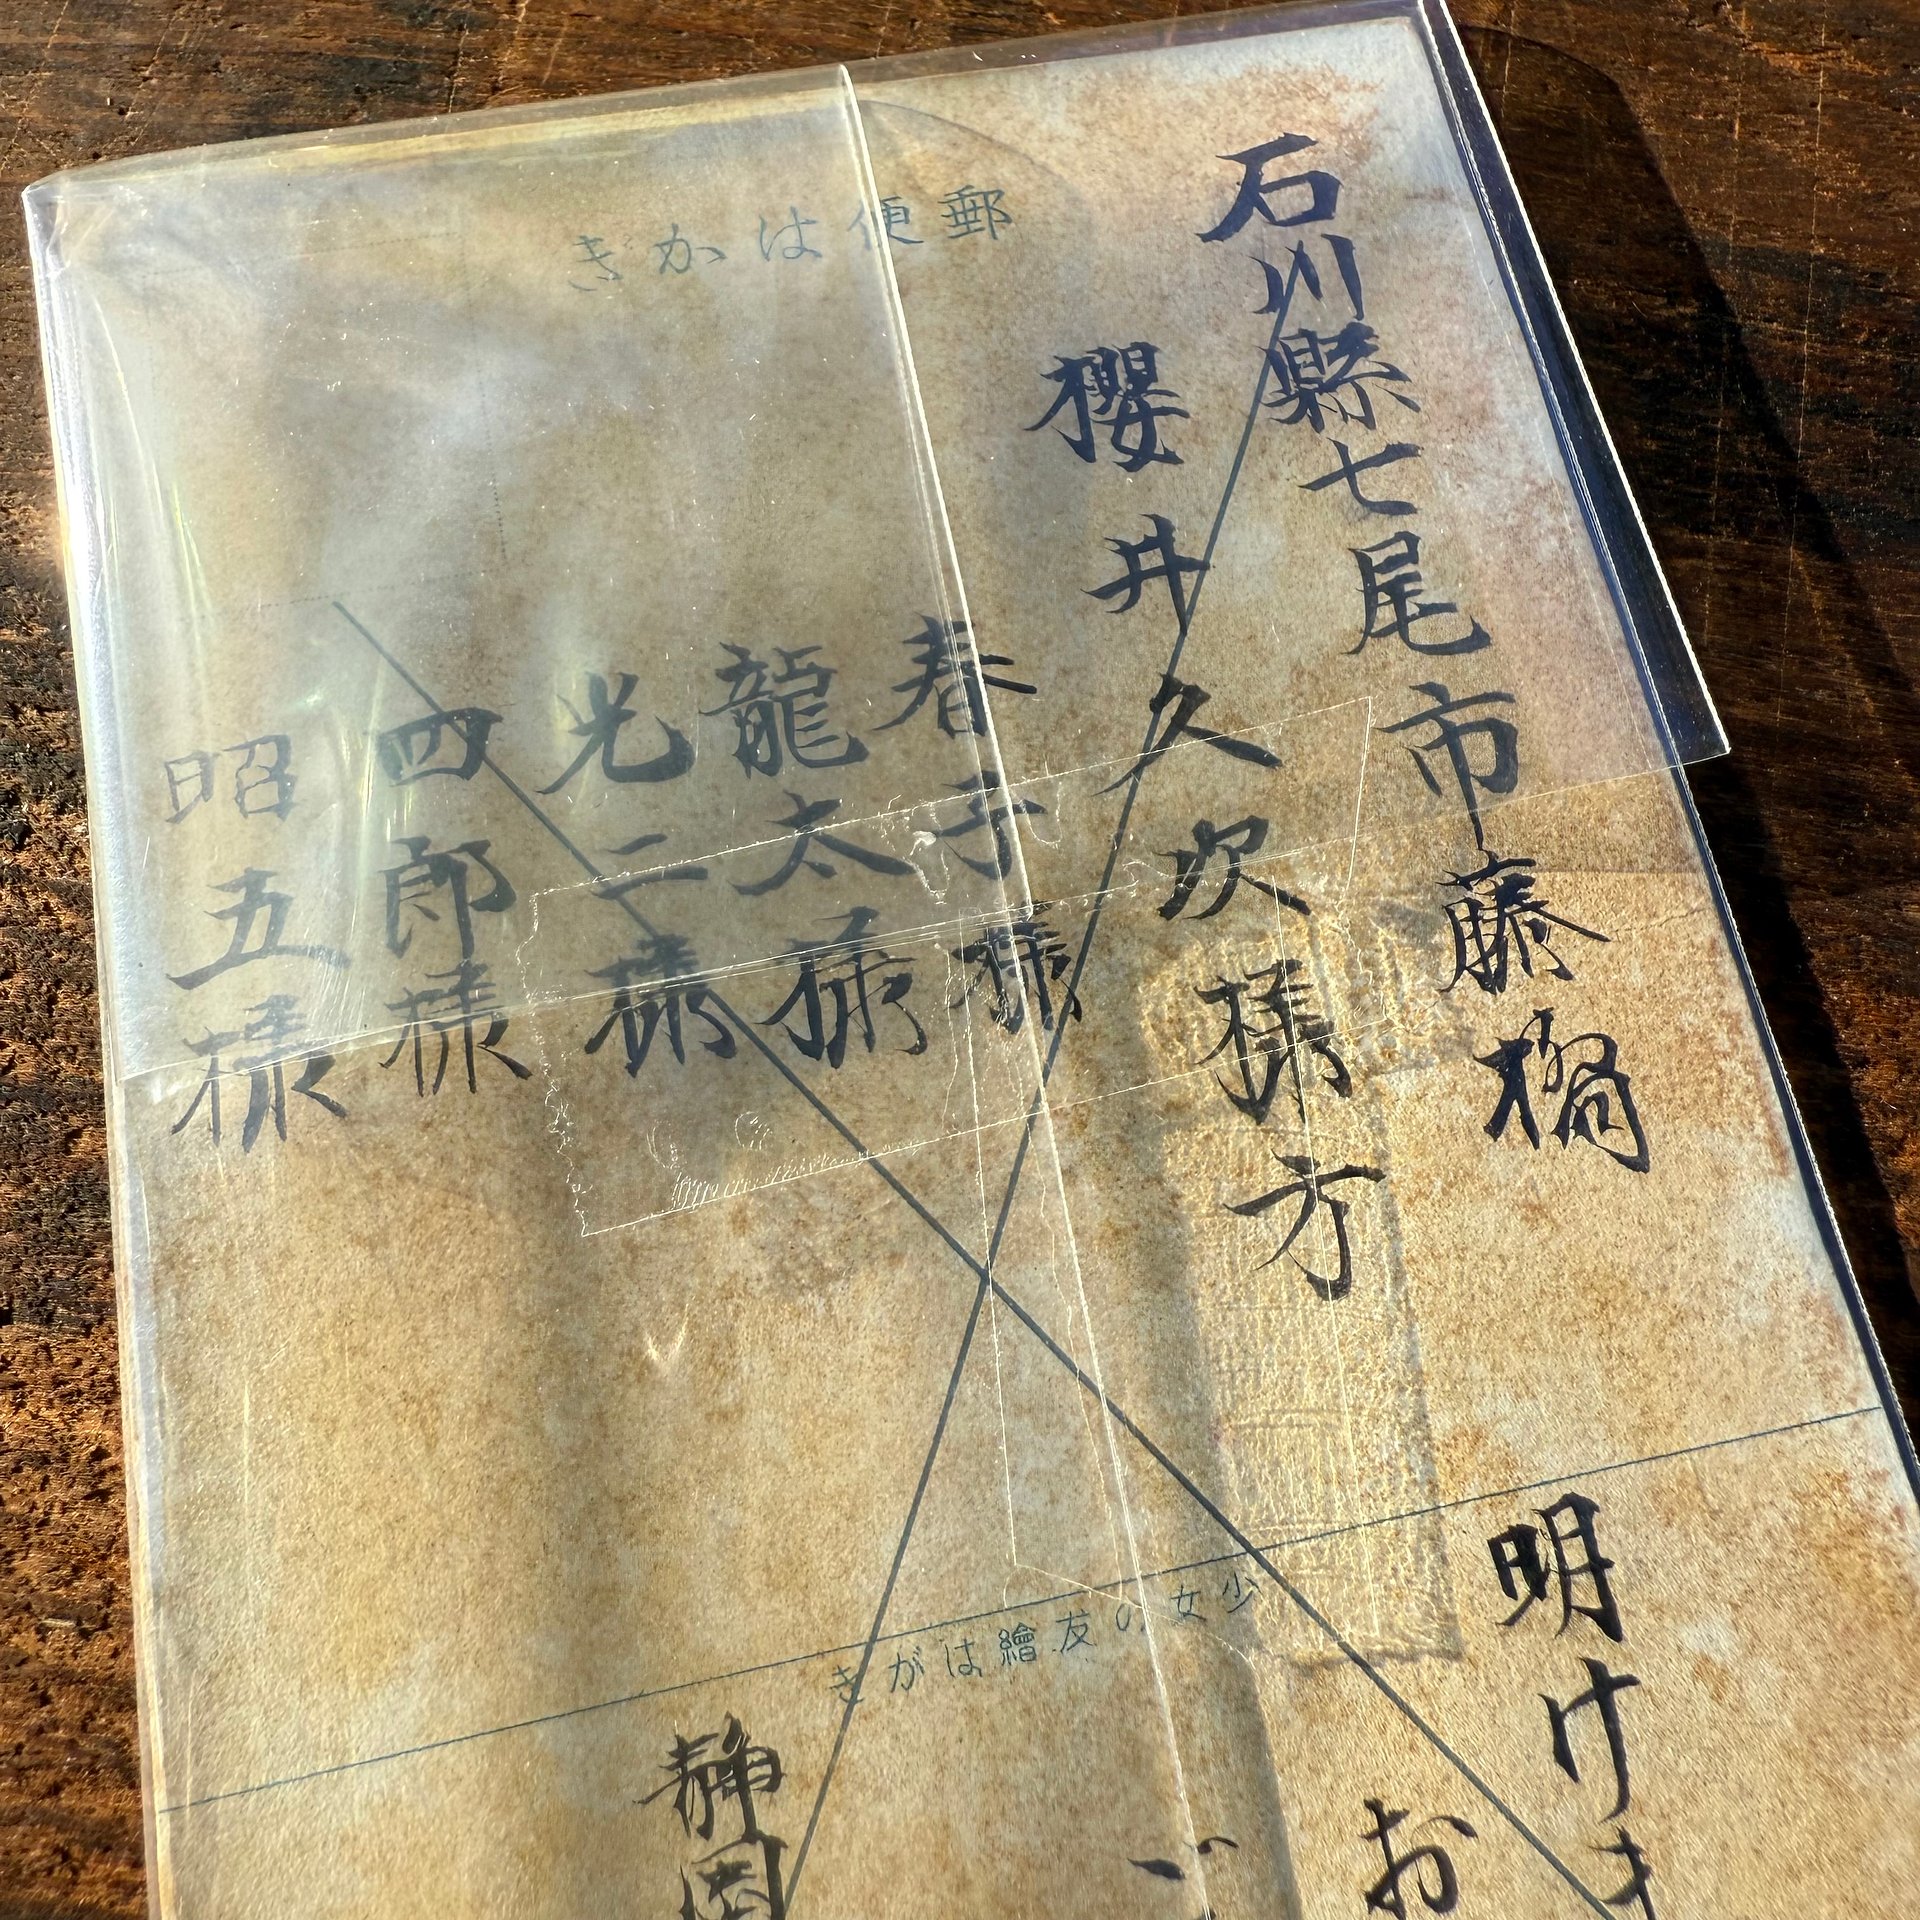 郵便はかき
石川縣七尾市藤橋
櫻井久次様方
春子様
龍太様
光二様
四郎様
昭五様
少女の友繪はがき
明けま
お
ご
静岡